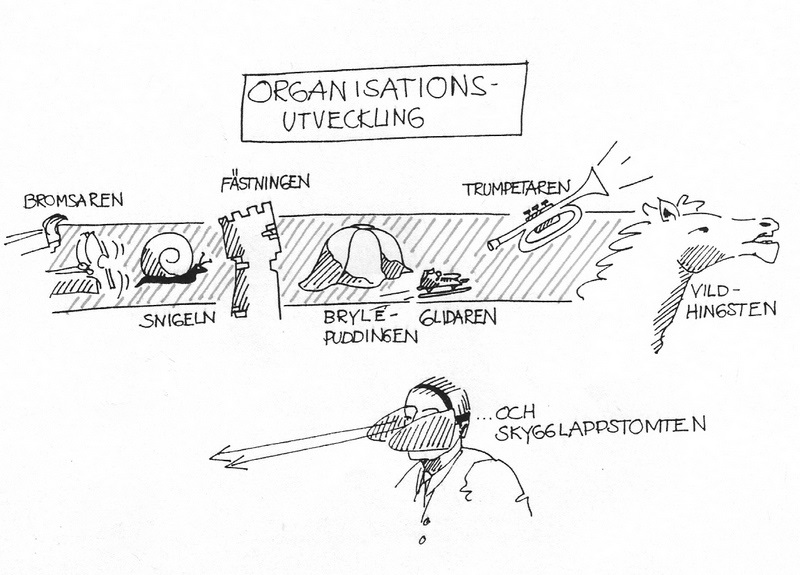 ORGANISATIONS-
UTVECKLING
BROMSAREN
FÄSTNINGEN
TRUMPETAREN
SNIGELN
BRYLÉ-
PUDDINGEN
GLIDAREN
VILD-
HINGSTEN
...OCH
SKYGGLAPPSTOMTEN